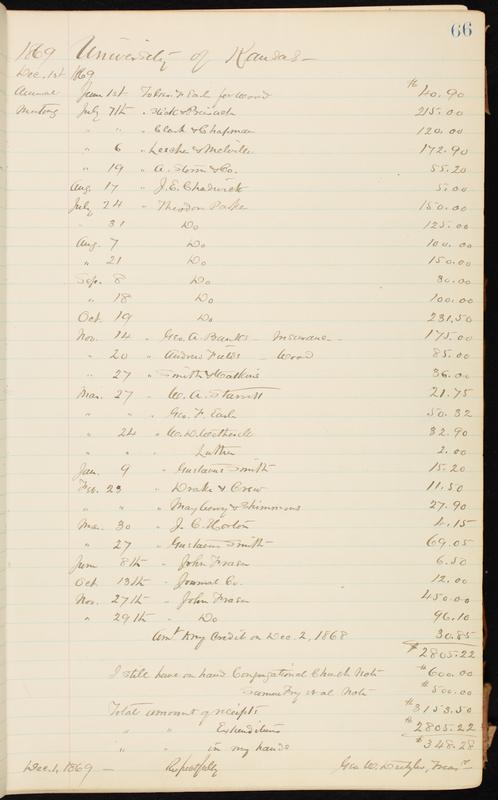 66
1869 University of Kansas —
Dec. 1st 1869
Annual June 1st To Geo. F. Earl for wood $40.90
Meeting July 7th " 215.00
" " " Clark & Chapman 120.00
" 6 " & Melville 172.90
" 19 " A. Storm & Co. 55.20
Aug. 17 " J. E. Chadwick 5.00
July 24 " Theodore Parker 150.00
" 31 Do 125.00
Aug. 7 Do 100.00
" 21 Do 150.00
Sep. 8 Do 30.00
" 18 Do 100.00
Oct. 19 Do 231.50
Nov. 14 " Geo. A. Banks — Insurance — 175.00
" 20 " Andrew — Wood 85.00
" 27 " Smith & Watkins 36.00
Mar. 27 " W. A. Starrett 21.75
" " " Geo. F. Earl 50.32
" 24 " 32.90
" " " Luther 2.00
Jan. 9 " Gustavus Smith 15.20
Feb. 23 " Drake & Crew 11.50
" " " & Shimmons 27.90
Mar. 30 " J. C. Horton 4.15
" 27 " Gustavus Smith 69.05
June 8th " John Fraser 6.50
Oct. 13th " Journal Co. 12.00
Nov. 27th " John Fraser 450.00
" 29th " Do 96.10
Amt my Credit on Dec. 2, 1868 30.85
$2805.22
I still have on hand Congregational Church Note $600.00
Samuel Fry et al. Note $500.00
Total amount of receipts $3153.50
" " Expenditures $2805.22
" " in my hands $348.28
Dec. 1, 1869 — Respectfully Geo W. Deitzler, Treasr